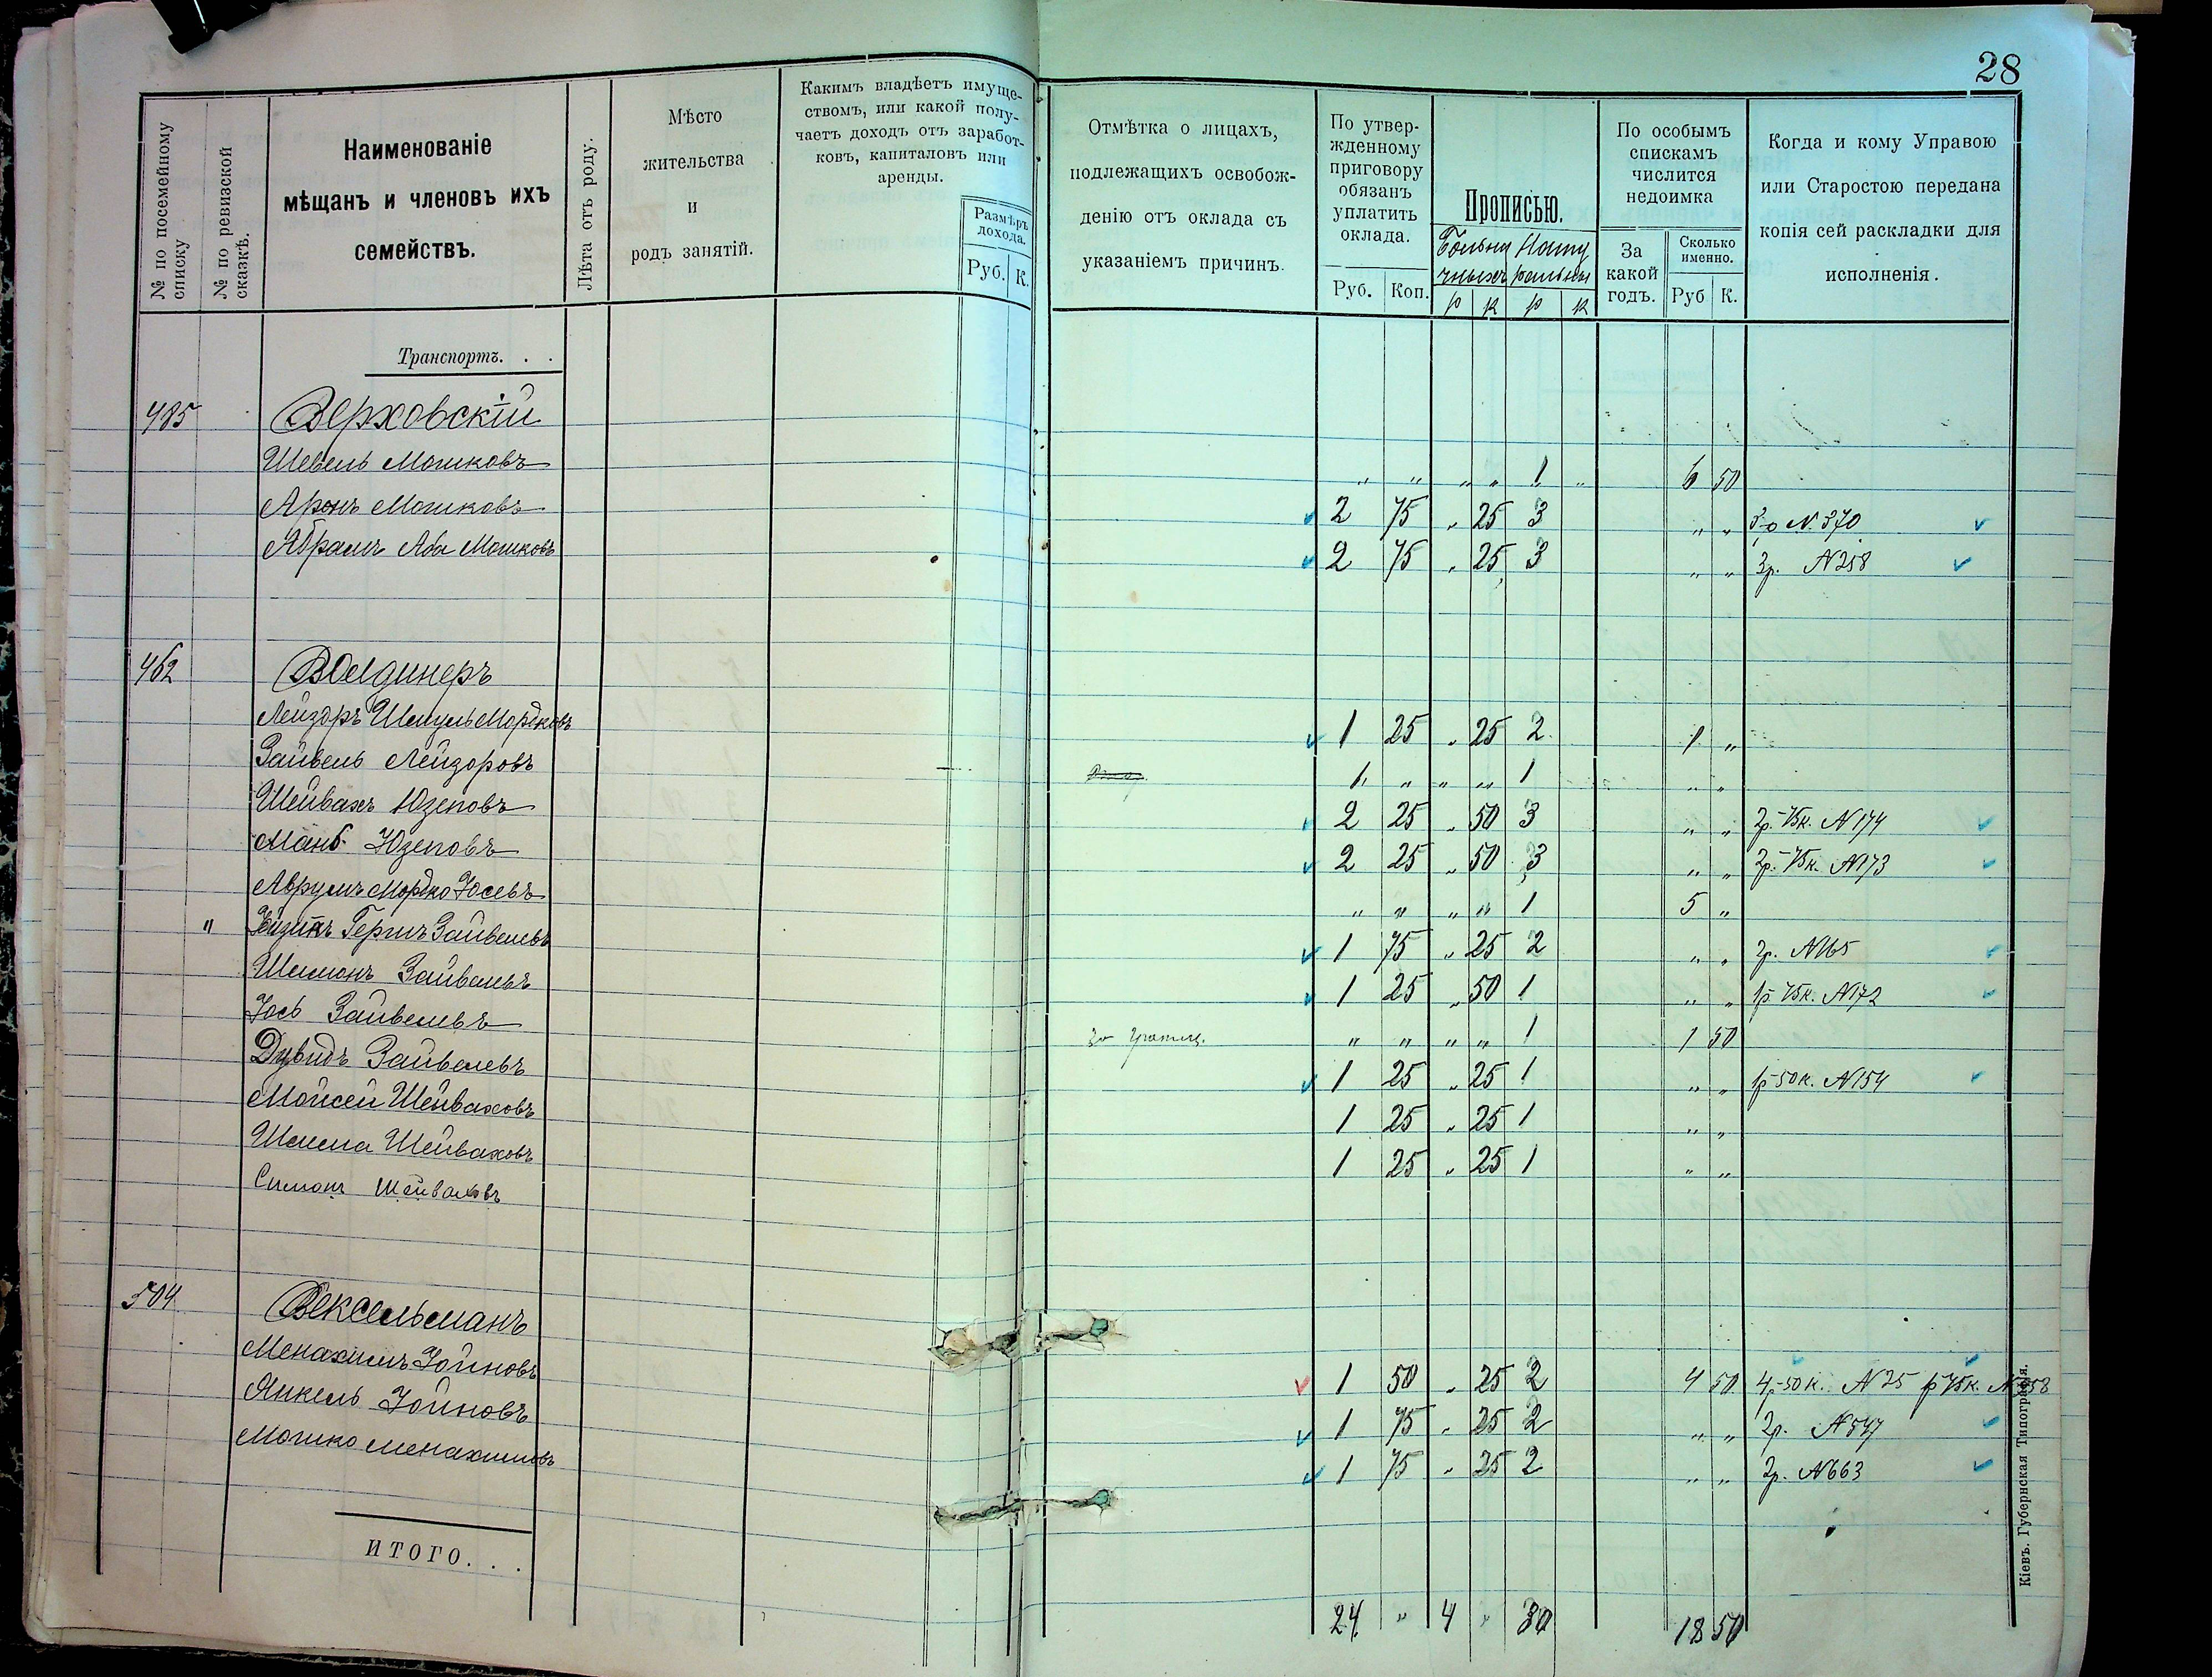 28
№ по посемейному списку
№ по ревизской сказкѣ.
Наименованіе
мѣщанъ и членовъ ихъ
семействъ.
Лѣта отъ роду.
Мѣсто
жительства
и
родъ занятій.
Какимъ владѣетъ имуще-
ствомъ, или какой полу-
чаетъ доходъ отъ заработ-
ковъ, капиталовъ или
аренды.
Размѣръ
дохода.
Руб. К.
Отмѣтка о лицахъ,
подлежащихъ освобож-
денію отъ оклада съ
указаніемъ причинъ.
По утвер-
жденному
приговору
обязанъ
уплатить
оклада.
Руб. Коп.
Прописью.
Больни Нату
чныхъ ральны
р к р к
По особымъ
спискамъ
числится
недоимка
За
какой
годъ.
Сколько
именно.
Руб К.
Когда и кому Управою
или Старостою передана
копія сей раскладки для
исполненія.
Транспортъ. . .
485 Верховскій
Шевель Мошковъ " " " " 1 " 6 50
Аронъ Мошковъ 2 75 " 25 3 " " 3р N. 370
Абрамъ Аба Мошковъ 2 75 " 25 3 " " 3р. N 258
462 Волдинеръ
Лейзоръ Шмуль Мордковъ 1 25 " 25 2 1 "
Зайвель Лейзоровъ 1 " " " 1 " "
Шейвахъ Юзеповъ 2 25 " 50 3 " " 2р.-75к. N 174
Юзеповъ 2 25 " 50 3 " " 2р.-75к. N 173
Аврумъ Мордко Юсевъ " " " " 1 5 "
" Гершъ Зайвелевъ 1 75 " 25 2 " " 2р. N 165
Шимонъ Зайвелевъ 1 25 " 50 1 " " 1р 75к. N 172
Іось Зайвелевъ За границ. " " " " 1 1 50
Дувидъ Зайвелевъ 1 25 " 25 1 " " 1р-50к. N 154
Мойсей Шейваховъ 1 25 " 25 1 " "
Шлема Шейваховъ 1 25 " 25 1 " "
Симонъ Шейваховъ
504 Вексельманъ
Менахимъ Іойновъ 1 50 " 25 2 4 50 4р-50к. N 25 р 75к. N 358
Янкель Іойновъ 1 75 " 25 2 " " 2р. N 547
Мошко Менахимовъ 1 75 " 25 2 " " 2р. N 663
ИТОГО. . .
24 " 4 " 30 18 50
Кіевъ. Губернская Типографія.